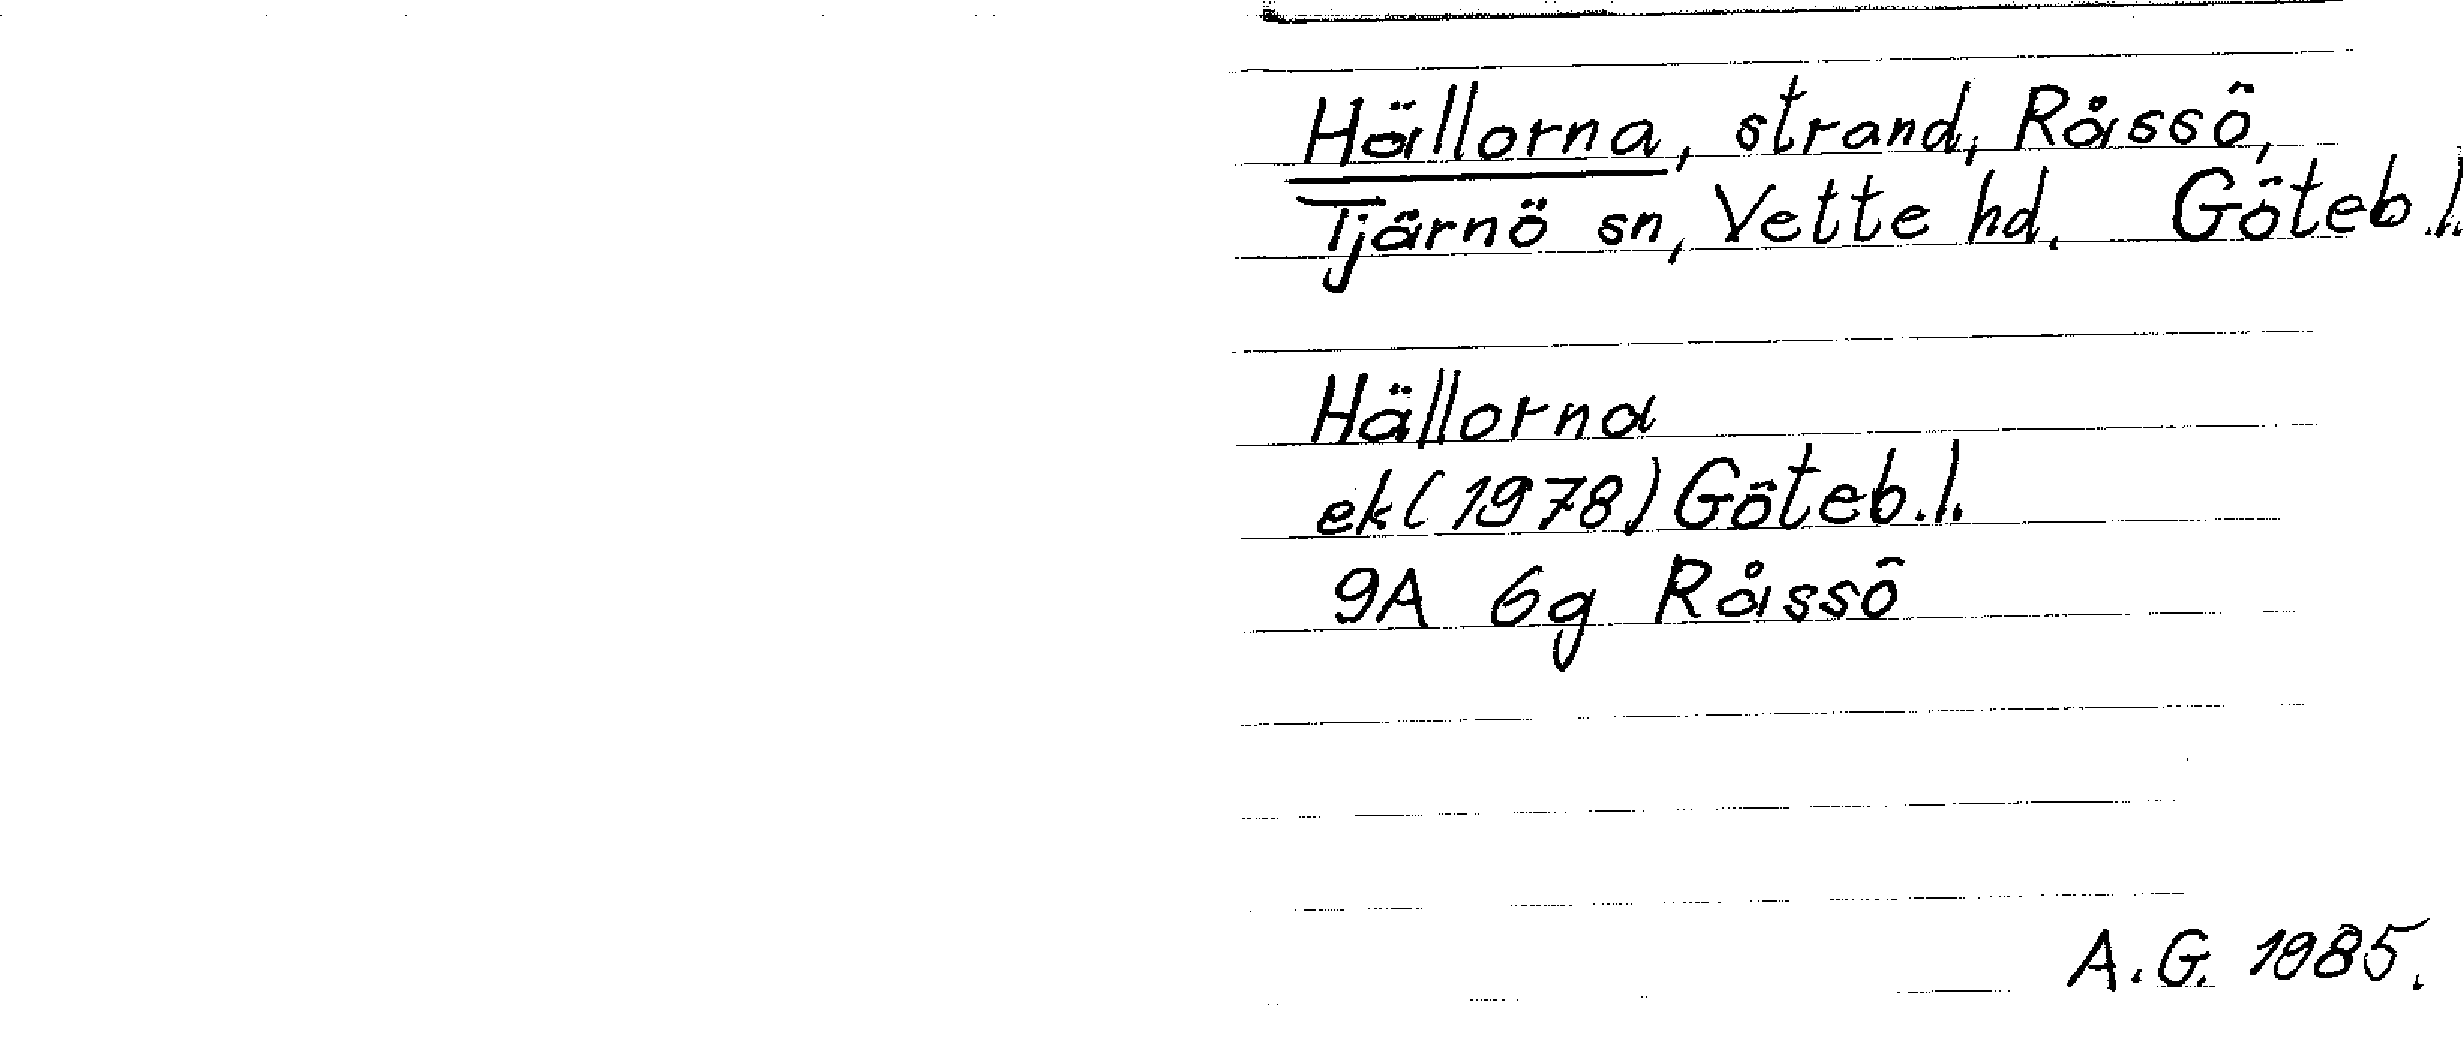 Hällorna, strand, Råssö,
Tjärnö sn, Vette hd. Göteb.l.
Hällorna
ek (1978) Göteb.l.
9A 6g Råssö
A.G. 1985.